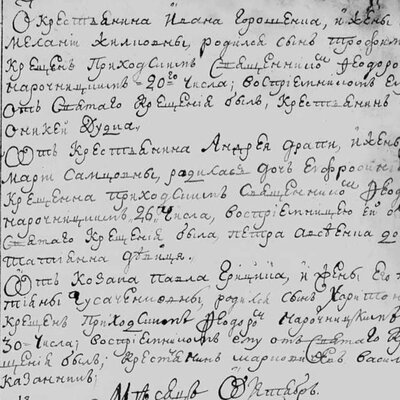 Ѿ Крестьянина Ивана Горошенца, и жены
Мелании родился сынъ Трофим
Крещенъ приходскимъ священникомъ Ѳеодоро
нарочницкимъ 20го числа; воспріемникомъ е
отъ святаго крещенія былъ, крестьянинъ
Оникей Дудка.
Отъ крестьянина Андрея и жены
Марѳ родилась дочь Ефросинї
крещенна приходскимъ священникомъ Ѳеод
нарочницкимъ 26го числа, воспріемницею ей о
святаго крещенія была, Петра до
Татіанна дѣвица.
Отъ козака Павла и жены его
родился сынъ Харитон
крещенъ приходскимъ Ѳеодоромъ Нарочницкимъ
30 числа; воспріемникомъ ему отъ святаго кр
щенія былъ; крестьянинъ васил
казанникъ;
Мѣсяцъ Октябрь.